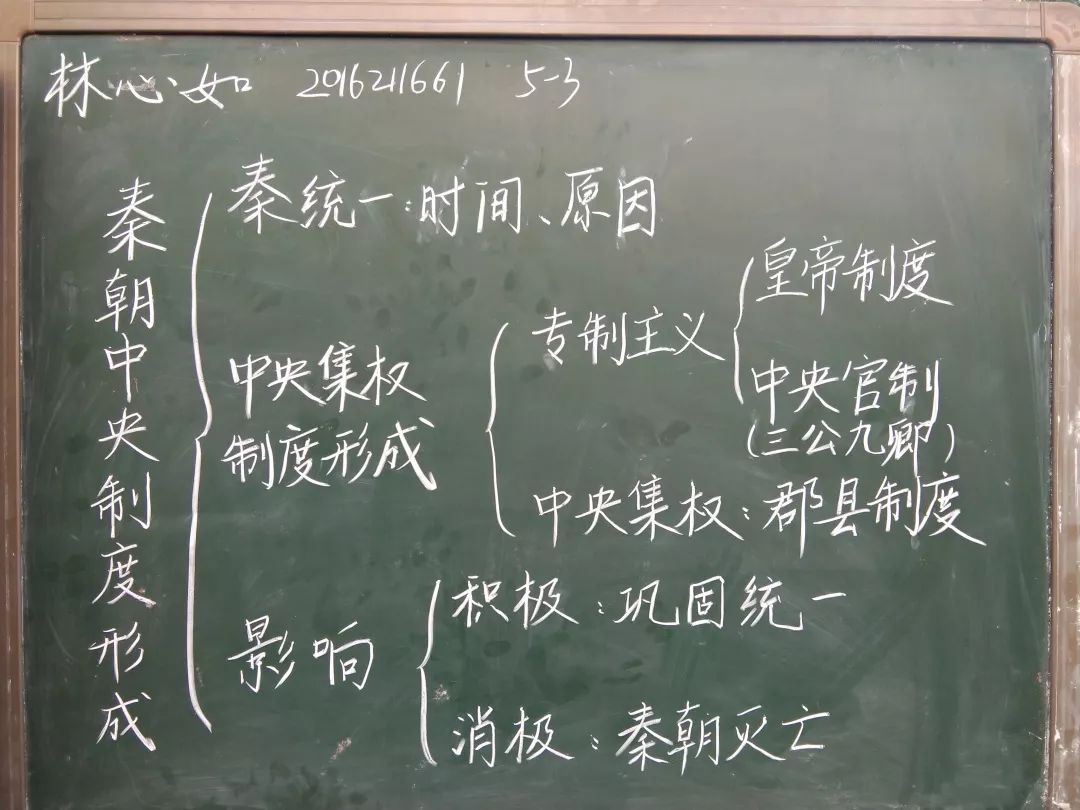 林心如 2016211661 5-3
秦朝中央制度形成
秦统一:时间、原因
中央集权
制度形成
专制主义
皇帝制度
中央官制
(三公九卿)
中央集权:郡县制度
影响
积极:巩固统一
消极:秦朝灭亡